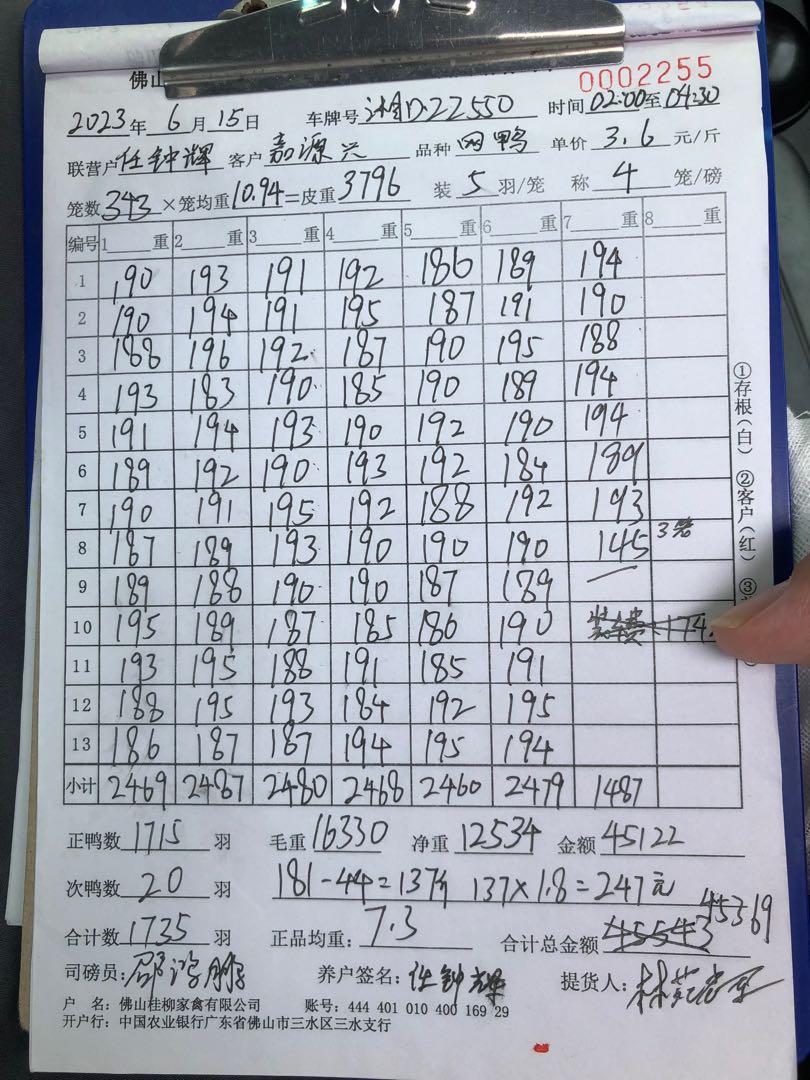 佛山
0002255
2023年6月15日 车牌号湘D·22550 时间02:00至04:30
联营户任钟辉 客户嘉源兴 品种网鸭 单价3.6元/斤
笼数343×笼均重10.94=皮重3796 装5羽/笼 称4笼/磅
编号 1重 2重 3重 4重 5重 6重 7重 8重
1 190 193 191 192 186 189 194
2 190 194 191 195 187 191 190
3 188 196 192 187 190 195 188
4 193 183 190 185 190 189 194
5 191 194 193 190 192 190 194
6 189 192 190 193 192 184 189
7 190 191 195 192 188 192 193
8 187 189 193 190 190 190 145 3笼
9 189 188 190 190 187 189 —
10 195 189 187 185 186 190
11 193 195 188 191 185 191
12 188 195 193 184 192 195
13 186 187 187 194 195 194
小计 2469 2487 2480 2468 2460 2479 1487
①存根(白) ②客户(红) ③
正鸭数1715羽 毛重16330 净重12534 金额45122
次鸭数20羽 181-44=137斤 137×1.8=247元
合计数1735羽 正品均重:7.3 合计总金额45543 45369
司磅员:邵鸿鹏 养户签名:任钟辉 提货人:
户 名:佛山桂柳家禽有限公司 账号:444 401 010 400 169 29
开户行:中国农业银行广东省佛山市三水区三水支行